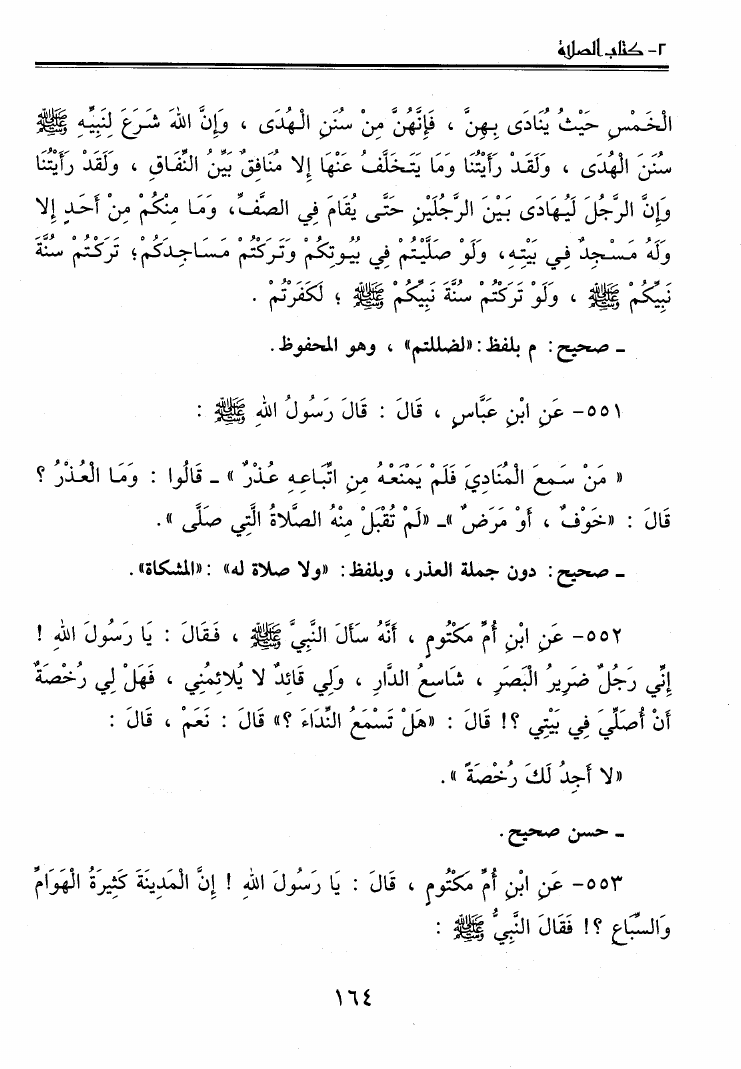 ٢- كتاب الصلاة
الْخَمْسِ حَيْثُ يُنَادَى بِهِنَّ ، فَإِنَّهُنَّ مِنْ سُنَنِ الْهُدَى ، وَإِنَّ اللهَ شَرَعَ لِنَبِيِّهِ ﷺ
سُنَنَ الْهُدَى ، وَلَقَدْ رَأَيْتُنَا وَمَا يَتَخَلَّفُ عَنْهَا إِلا مُنَافِقٌ بَيِّنُ النِّفَاقِ ، وَلَقَدْ رَأَيْتُنَا
وَإِنَّ الرَّجُلَ لَيُهَادَى بَيْنَ الرَّجُلَيْنِ حَتَّى يُقَامَ فِي الصَّفِّ، وَمَا مِنْكُمْ مِنْ أَحَدٍ إِلا
وَلَهُ مَسْجِدٌ فِي بَيْتِهِ، وَلَوْ صَلَّيْتُمْ فِي بُيُوتِكُمْ وَتَرَكْتُمْ مَسَاجِدَكُمْ؛ تَرَكْتُمْ سُنَّةَ
نَبِيِّكُمْ ﷺ ، وَلَوْ تَرَكْتُمْ سُنَّةَ نَبِيِّكُمْ ﷺ ؛ لَكَفَرْتُمْ .
ـ صحيح: م بلفظ: «لضللتم» ، وهو المحفوظ.
٥٥١- عَنِ ابْنِ عَبَّاسٍ ، قَالَ : قَالَ رَسُولُ اللهِ ﷺ :
« مَنْ سَمِعَ الْمُنَادِيَ فَلَمْ يَمْنَعْهُ مِنِ اتِّبَاعِهِ عُذْرٌ » ـ قَالُوا : وَمَا الْعُذْرُ ؟
قَالَ : «خَوْفٌ ، أَوْ مَرَضٌ »ـ «لَمْ تُقْبَلْ مِنْهُ الصَّلاةُ الَّتِي صَلَّى ».
ـ صحيح: دون جملة العذر، وبلفظ: «ولا صلاة له» : «المشكاة».
٥٥٢- عَنِ ابْنِ أُمِّ مَكْتُومٍ ، أَنَّهُ سَأَلَ النَّبِيَّ ﷺ ، فَقَالَ : يَا رَسُولَ اللهِ !
إِنِّي رَجُلٌ ضَرِيرُ الْبَصَرِ ، شَاسِعُ الدَّارِ ، وَلِي قَائِدٌ لا يُلائِمُنِي ، فَهَلْ لِي رُخْصَةٌ
أَنْ أُصَلِّيَ فِي بَيْتِي ؟! قَالَ : «هَلْ تَسْمَعُ النِّدَاءَ ؟» قَالَ : نَعَمْ ، قَالَ :
«لا أَجِدُ لَكَ رُخْصَةً ».
ـ حسن صحيح.
٥٥٣- عَنِ ابْنِ أُمِّ مَكْتُومٍ ، قَالَ : يَا رَسُولَ اللهِ ! إِنَّ الْمَدِينَةَ كَثِيرَةُ الْهَوَامِّ
وَالسِّبَاعِ ؟! فَقَالَ النَّبِيُّ ﷺ :
١٦٤